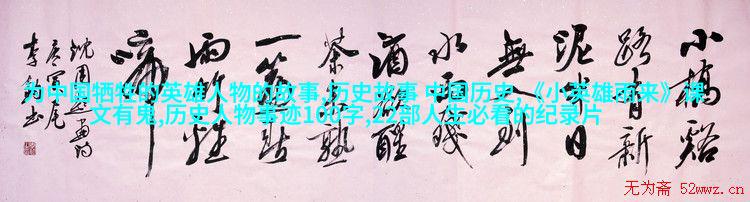 为中国牺牲的英雄人物的故事,历史故事 中国历史,《小英雄雨来》课
文有鬼,历史人物事迹100字,22部人生必看的纪录片
小橋谿
路有新
泥半日
無人到
水西殘
酒欲醒
茶未熟
一簾春
雨竹雞
啼
沈周題畫詩
庚寅尾
无为斋 52wwz.cn